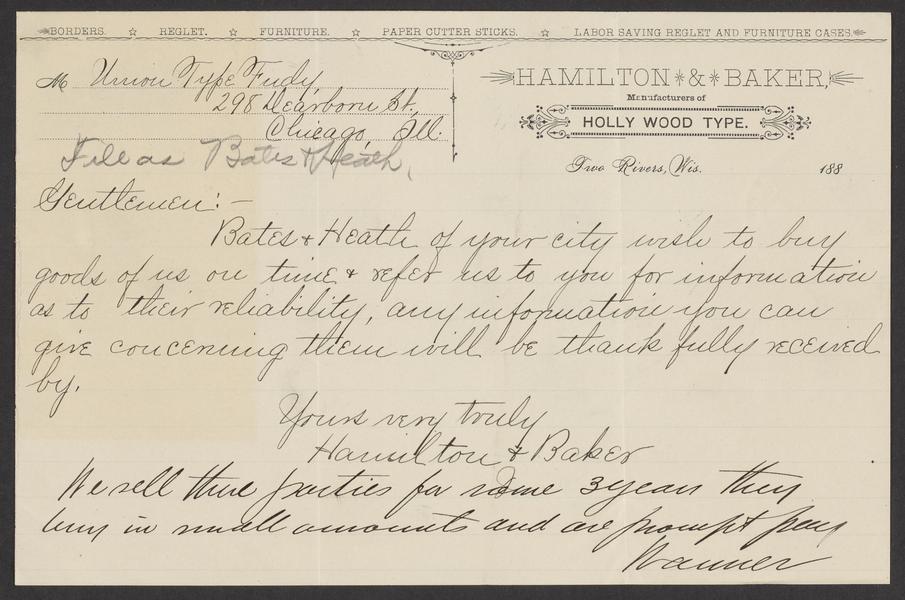 BORDERS. ☆ REGLET. ☆ FURNITURE. ☆ PAPER CUTTER STICKS. ☆ LABOR SAVING REGLET AND FURNITURE CASES.
HAMILTON & BAKER,
Manufacturers of
HOLLY WOOD TYPE.
Two Rivers, Wis. 188
M Union Type Fndy,
298 Dearborn St.,
Chicago, Ill.
File as Bates & Heath,
Gentlemen:—
Bates & Heath of your city wish to buy
goods of us on time & refer us to you for information
as to their reliability, any information you can
give concerning them will be thankfully received
by.
Yours very truly
Hamilton & Baker
We sell these parties for some 3 years they
buy in small amounts and are prompt pay
Wanner